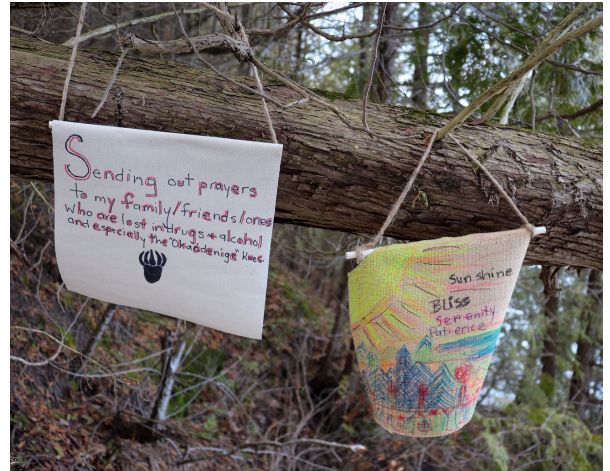 Sending out prayers
to my family/friends/ones
who are lost in drugs + alcohol
and especially the "Okaadenige"
Sunshine
Bliss
Serenity
Patience